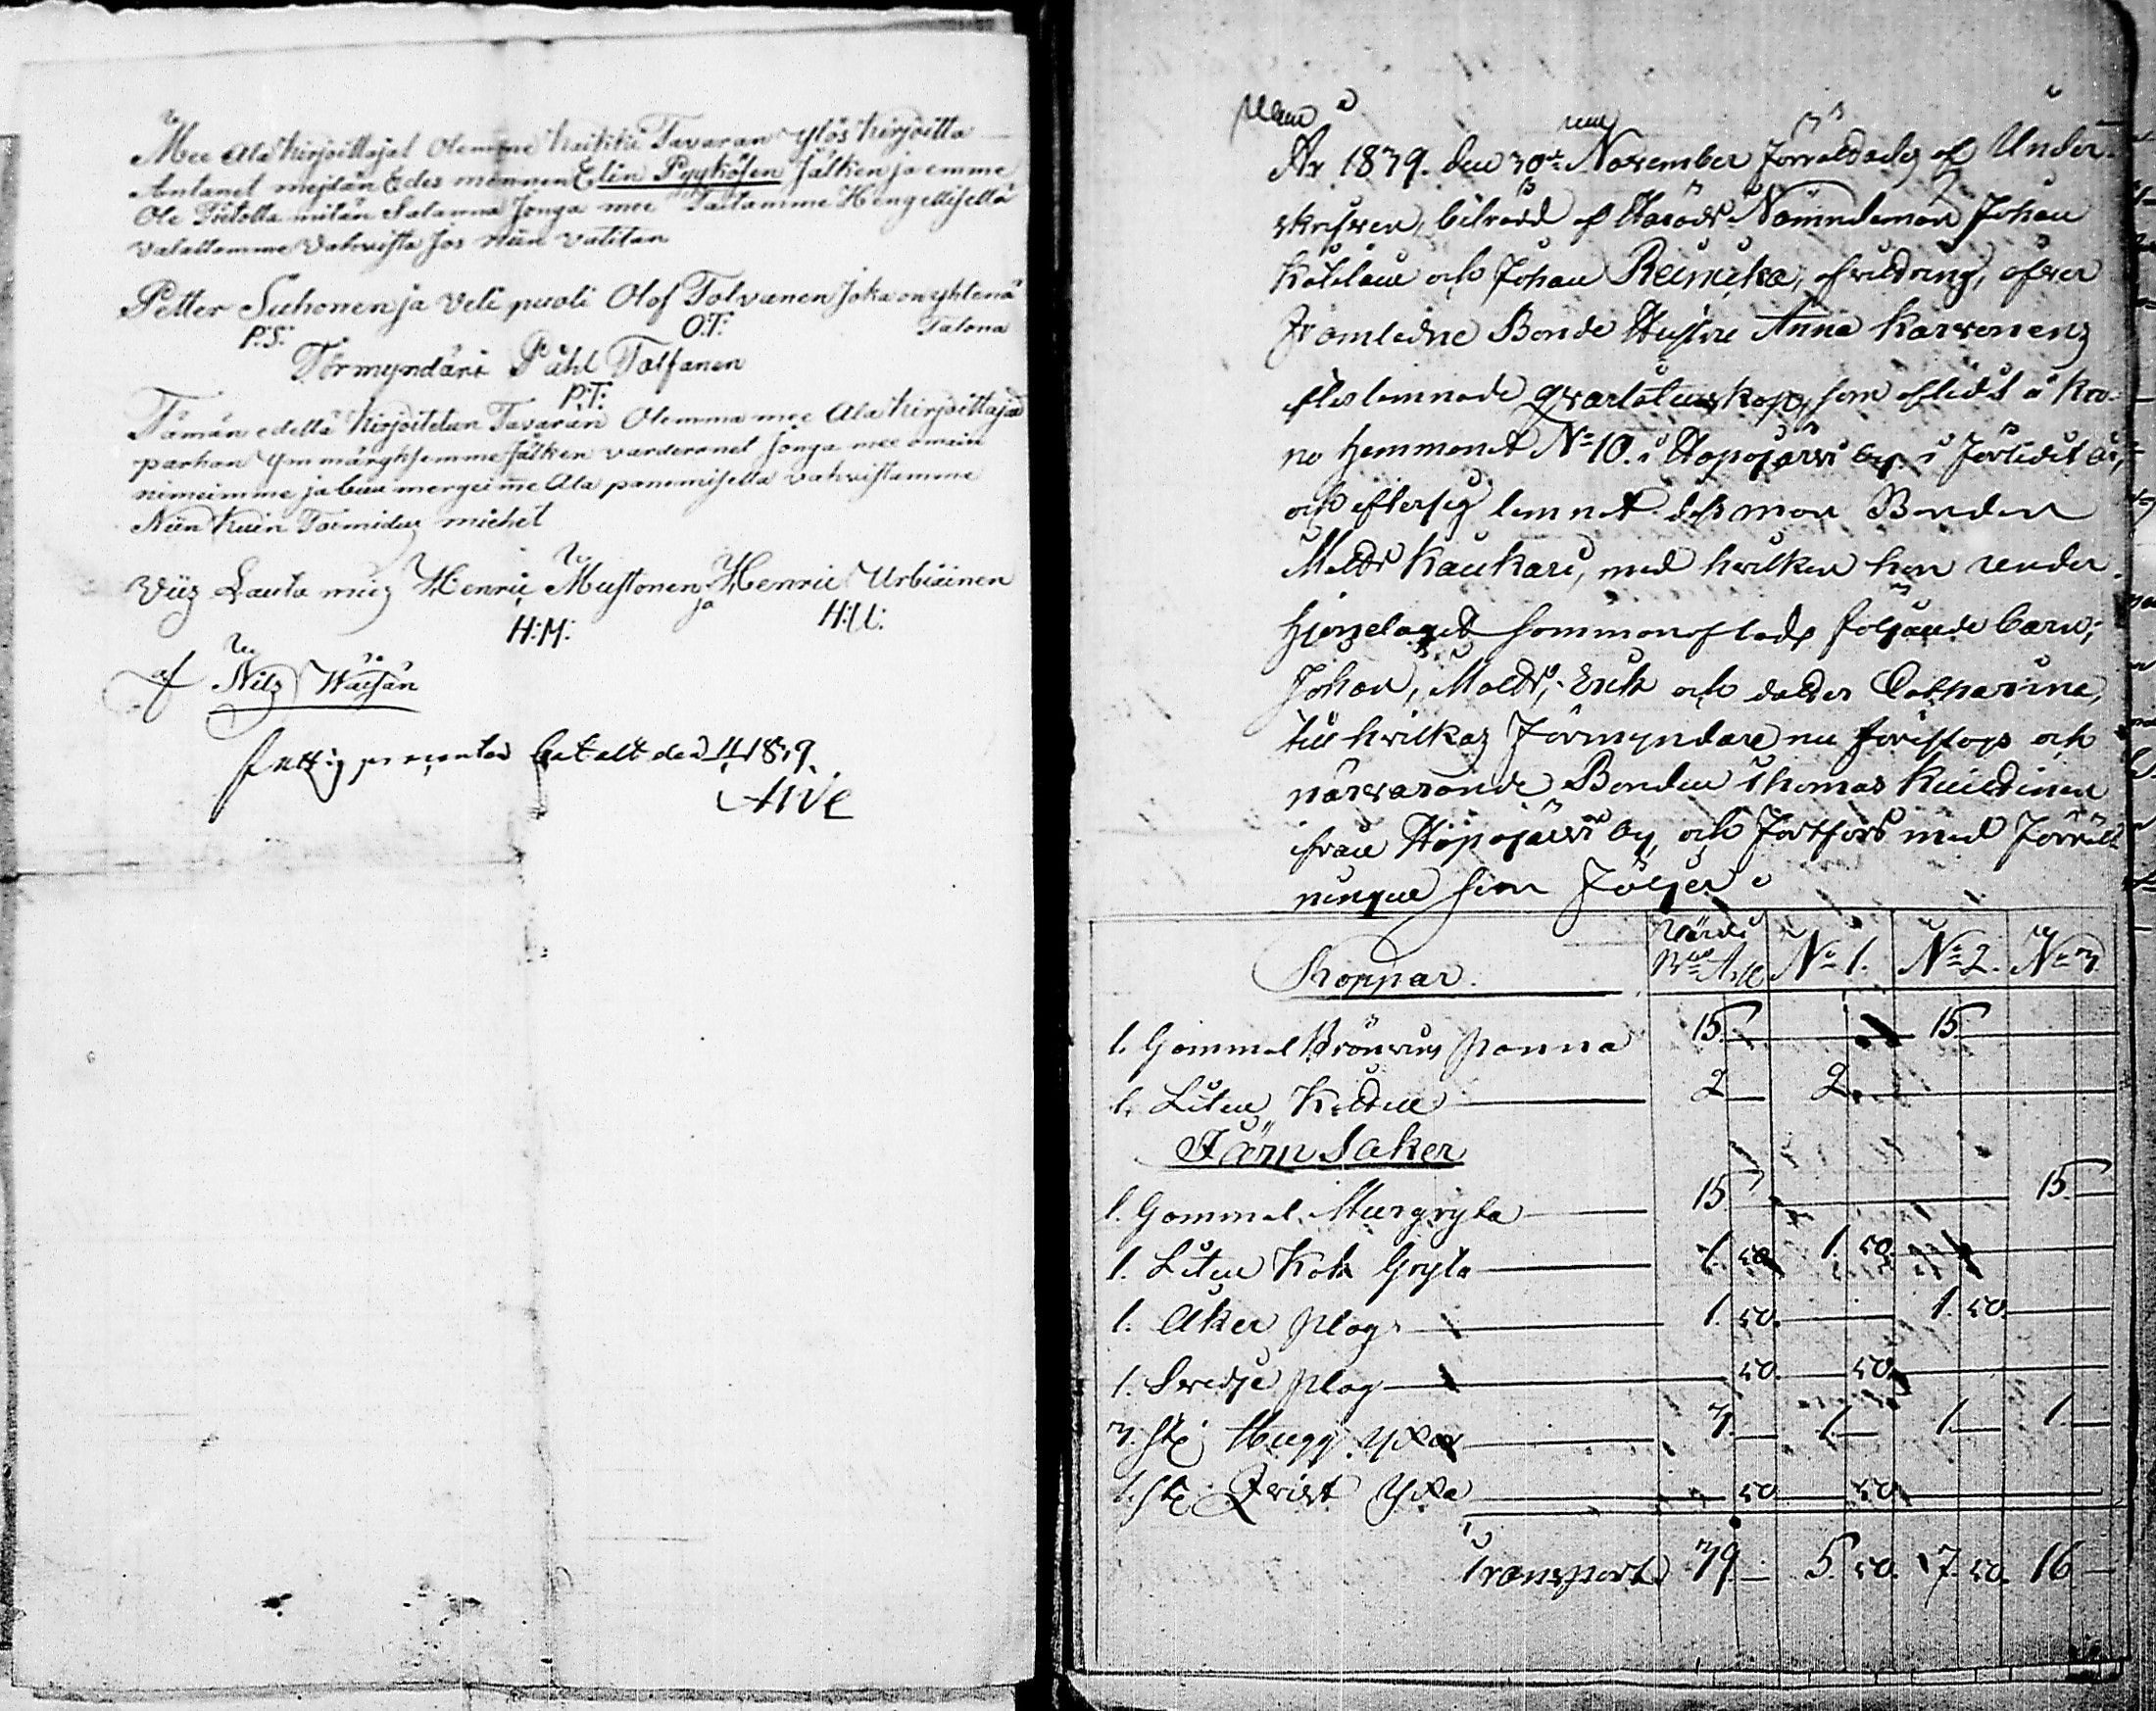 Mee Ala kirjoittajat Olemme kaikki Tavaran Ylös kirjoitta
Antanet mejdän Edes mennen Elin Pyykösen Jälken ja emme
Ole Tietolla mitän Salanna Jonga mee Taidamme Hengellisellä
valallamme vahvista Jos niin vaditan
Petter Suhonen ja veli puoli Olof Tolvanen Joka on yhtenä
P:S: O:T: Talona
Förmyndäri Påhl Tolfanen
P:T:
Tämän edellä kirjoitetun Tavaran Olemma mee Ala kirjoittajad
parhan Ymmärghsemme Jälken värderanet Jonga mee omain
nimeimme ja buu mergeime Ala panemisella vahvistamme
Niin kuin Tormiduz miehet
Viiz Lauta miez Henric Mustonen ja Henric Urbiainen
H:M: H:U:
af Nilz Väisän
fattig procenten betalt den 1839.
År 1839. den 30de November förrättades af Under-
skrifven, biträdd af Härads Nämndemän Johan
och Johan Reinicka, afvittring, efter
framledne Bonde Hustru Anna Karvonens
efterlemnade qvarlåtenskap, som aflidit å Kro-
no Hemmanet No 10. i by i förledit år,
och efter sig lemnat dess man Bonden
Matts Kaukari, med hvilken hon under
hjonelaget sammanaflade följande barn;
Johan, Matts, Erik och dotter Catharina,
till hvilkas Förmyndare nu föreslogs och
närvarande Bonden Thomas
ifrån by, och fortfors med förrätt-
ningen som följer
Koppar. Värde No 1. No 2. No 3.
1. Gammal Bränvins panna 15. 15.
1. Liten Kettill 2 2.
Järn Saker
1. Gammal Murgryta 15 15
1. Liten Kok Gryta 1. 50 1. 50.
1. Åker plog 1. 50. 1. 50.
1. Svedje plog 50. 50.
3. st: Hugg Yxor 3. 1. 1. 1
1. st: Qvist Yxa 50 50
Transport 39 5 50. 17. 50. 16